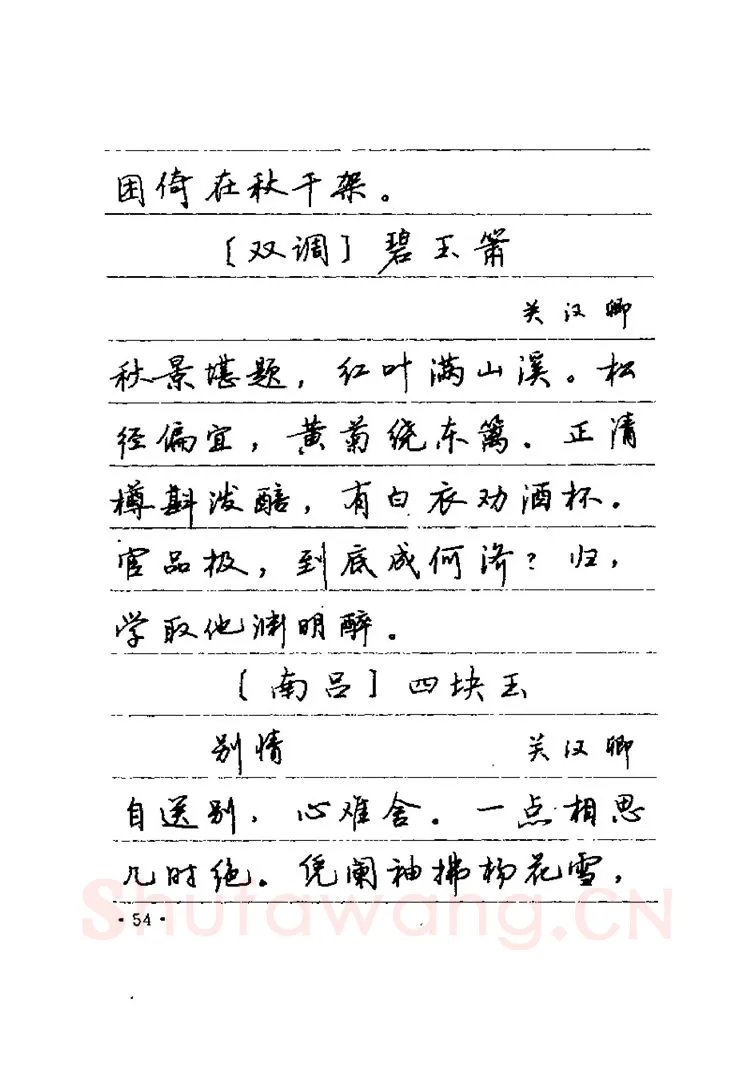 困倚在秋千架。
［双调］碧玉箫
关汉卿
秋景堪题，红叶满山溪。松
径偏宜，黄菊绕东篱。正清
樽斟泼醅，有白衣劝酒杯。
官品极，到底成何济？归，
学取他渊明醉。
［南吕］四块玉
别情 关汉卿
自送别，心难舍。一点相思
几时绝。凭阑袖拂杨花雪，
Shufawang.CN
·54·